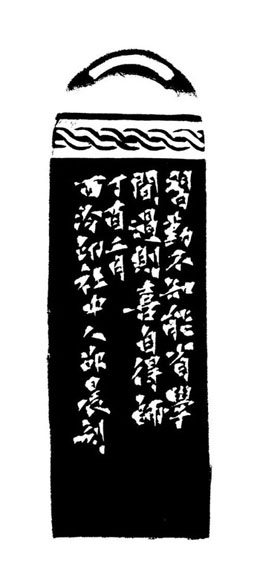 習勤不知能省學
聞過則喜自得師
丁酉二月
西泠印社中人邵晨刻